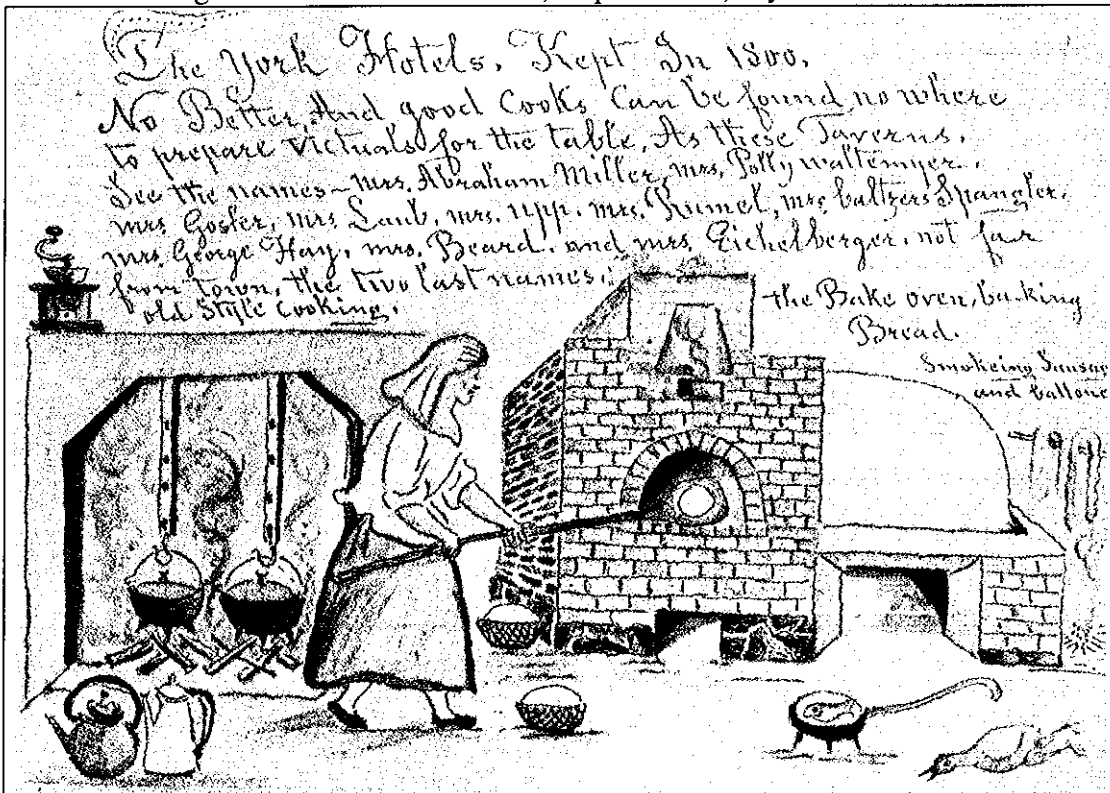 The York Hotels. Kept In 1800.
No Better, And good Cooks Can be found no where
to prepare victuals for the table, As these Taverns.
See the names - mrs. Abraham Miller, mrs. Polly waltemyer.
mrs Gosler, mrs. Laub, mrs. upp. mrs. Rumel, mrs. baltzers Spangler.
mrs. George Hay. mrs. Beard. and mrs. Eichelberger. not far
from town, the two last names.
old Style Cooking.
the Bake oven, baking
Bread.
Smokeing Sausag
and